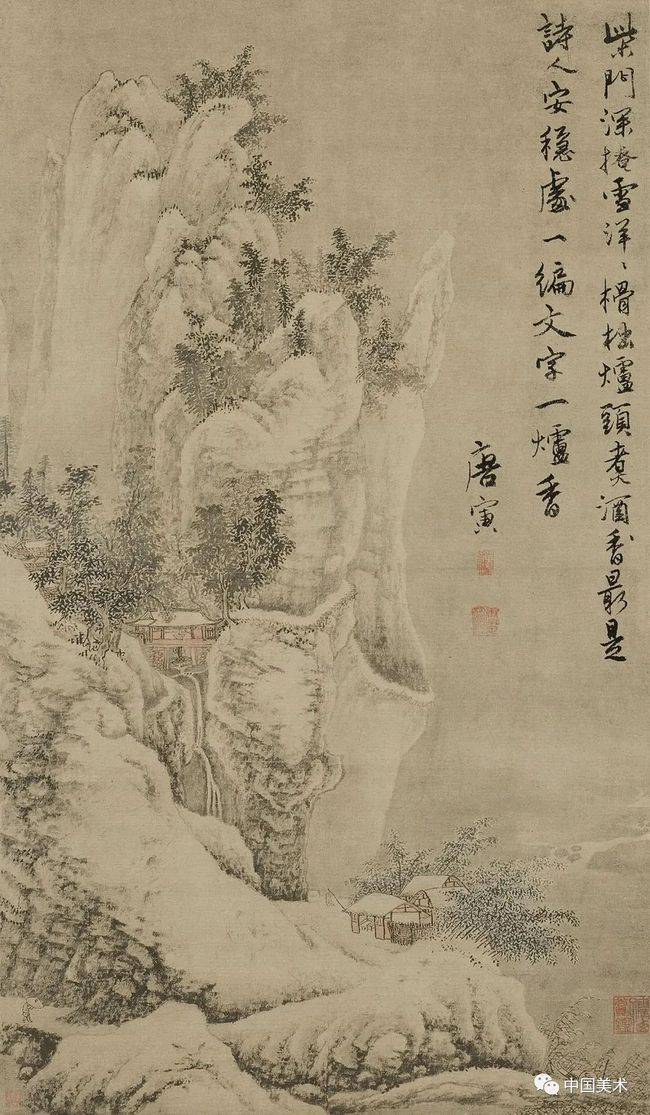 柴門深掩雪洋〻榾柮爐頭煮酒香最是
詩人安穩處一編文字一爐香
唐寅
中国美术